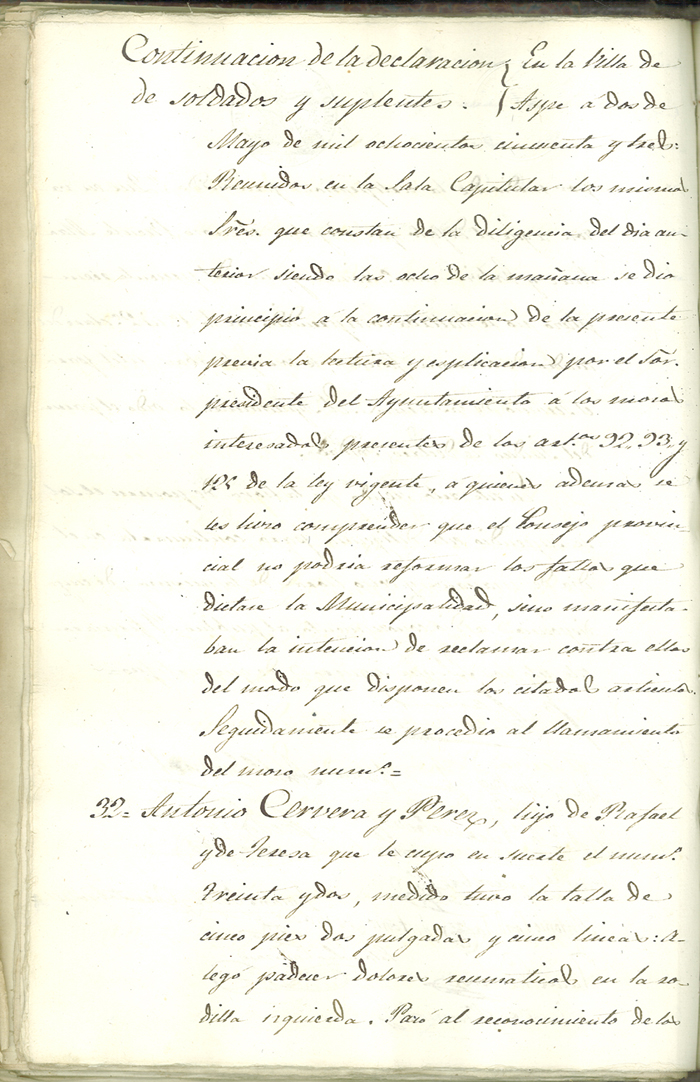 Continuacion de la declaracion { En la Villa de
de soldados y suplentes. { Aspe á dos de
Mayo de mil ochocientos cincuenta y tres:
Reunidos en la Sala Capitular los mismos
Sres. que constan de la diligencia del dia an-
terior siendo las ocho de la mañana se dio
principio á la continuacion de la presente
previa la lectura y esplicacion por el Sor.
presidente del Ayuntamiento á los mosos
interesados presentes de los artos. 92, 93, y
125 de la ley vigente, a quienes ademas se
les hiso comprender que el Consejo provin-
cial no podria reformar los fallos que
dictare la Municipalidad, sino manifesta-
ban la intencion de reclamar contra ellos
del modo que disponen los citados articulos.
Seguidamente se procedio al llamamiento
del moso numo.=
32= Antonio Cervera y Perez, hijo de Rafael
y de Teresa que le cupo en suerte el numo.
treinta y dos, medido tuvo la talla de
cinco pies dos pulgadas y cinco lineas: a-
legó padecer dolores reumaticos en la ro-
dilla izquierda. Pasó al reconocimiento de los